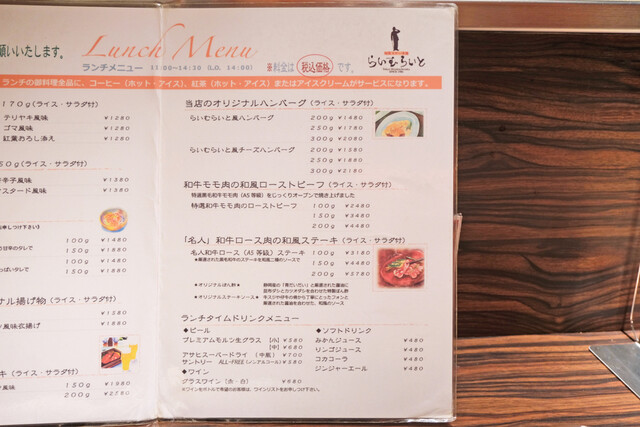 願いいたします。
Lunch Menu
ランチメニュー 11:00～14:30 (L.O. 14:00)
※料金は 税込価格 です。
らいむらいと
ランチの御料理全品に、コーヒー（ホット・アイス）、紅茶（ホット・アイス）またはアイスクリームがサービスになります。
170g(ライス・サラダ付)
テリヤキ風味 ¥1280
ゴマ風味 ¥1280
紅葉おろし添え ¥1280
50g(ライス・サラダ付)
辛子風味 ¥1380
スタード風味 ¥1380
100g ¥1480
150g ¥1880
100g ¥1480
150g ¥1880
揚げ物(ライス・サラダ付)
風味衣揚げ ¥1680
(ライス・サラダ付)
風味 150g ¥1980
200g ¥2580
当店のオリジナルハンバーグ(ライス・サラダ付)
らいむらいと風ハンバーグ 200g ¥1480
250g ¥1780
300g ¥2080
らいむらいと風チーズハンバーグ 200g ¥1580
250g ¥1880
300g ¥2180
和牛モモ肉の和風ローストビーフ(ライス・サラダ付)
特選黒毛和牛モモ肉(A5等級)をじっくりオーブンで焼き上げました
特選和牛モモ肉のローストビーフ 100g ¥2480
150g ¥3480
200g ¥4480
「名人」和牛ロース肉の和風ステーキ(ライス・サラダ付)
名人和牛ロース(A5等級)ステーキ 100g ¥3180
150g ¥4480
200g ¥5780
＊オリジナルぽん酢
＊オリジナルステーキソース
ランチタイムドリンクメニュー
◆ビール
プレミアムモルツ生グラス [小] ¥580
[中] ¥680
アサヒスーパードライ (中瓶) ¥700
サントリー ALL-FREE(ノンアルコール) ¥580
◆ワイン
グラスワイン [赤・白] ¥680
※ワインをボトルでご希望のお客様は、ワインリストをお申し付け下さい。
◆ソフトドリンク
みかんジュース ¥480
リンゴジュース ¥480
コカコーラ ¥480
ジンジャーエール ¥480